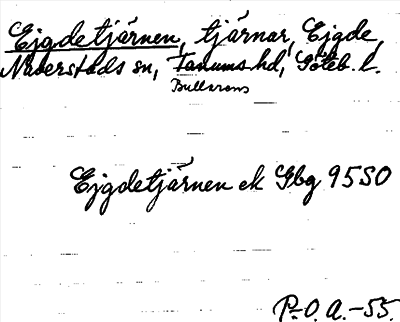 Ejgdetjärnen, tjärnar, Ejgde,
Naverstads sn, Tanums hd, Göteb. l.
Bullarens
Ejgdetjärnen ek Gbg 95SO
P.-O. A. -55.